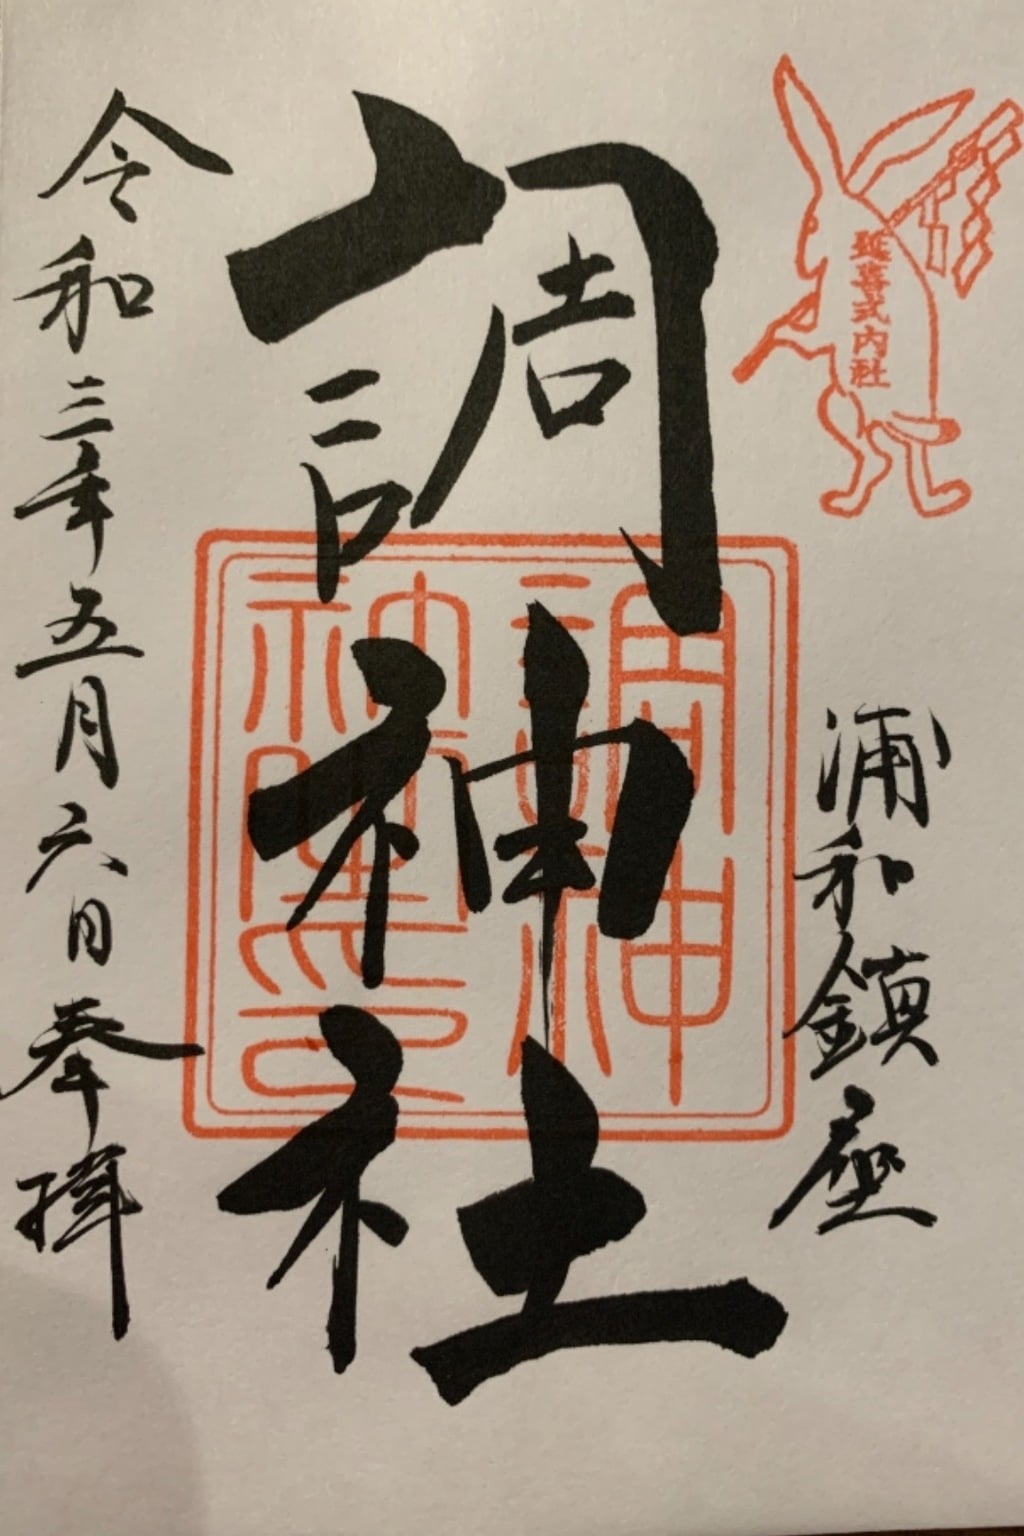 延喜式内社
浦和鎮座
調神社
調神
社璽印
令和三年五月六日奉拝